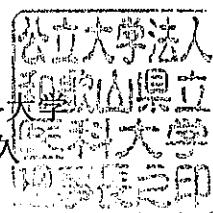 公立大学法人
和歌山県立
医科大学
理事長之印
大学
久